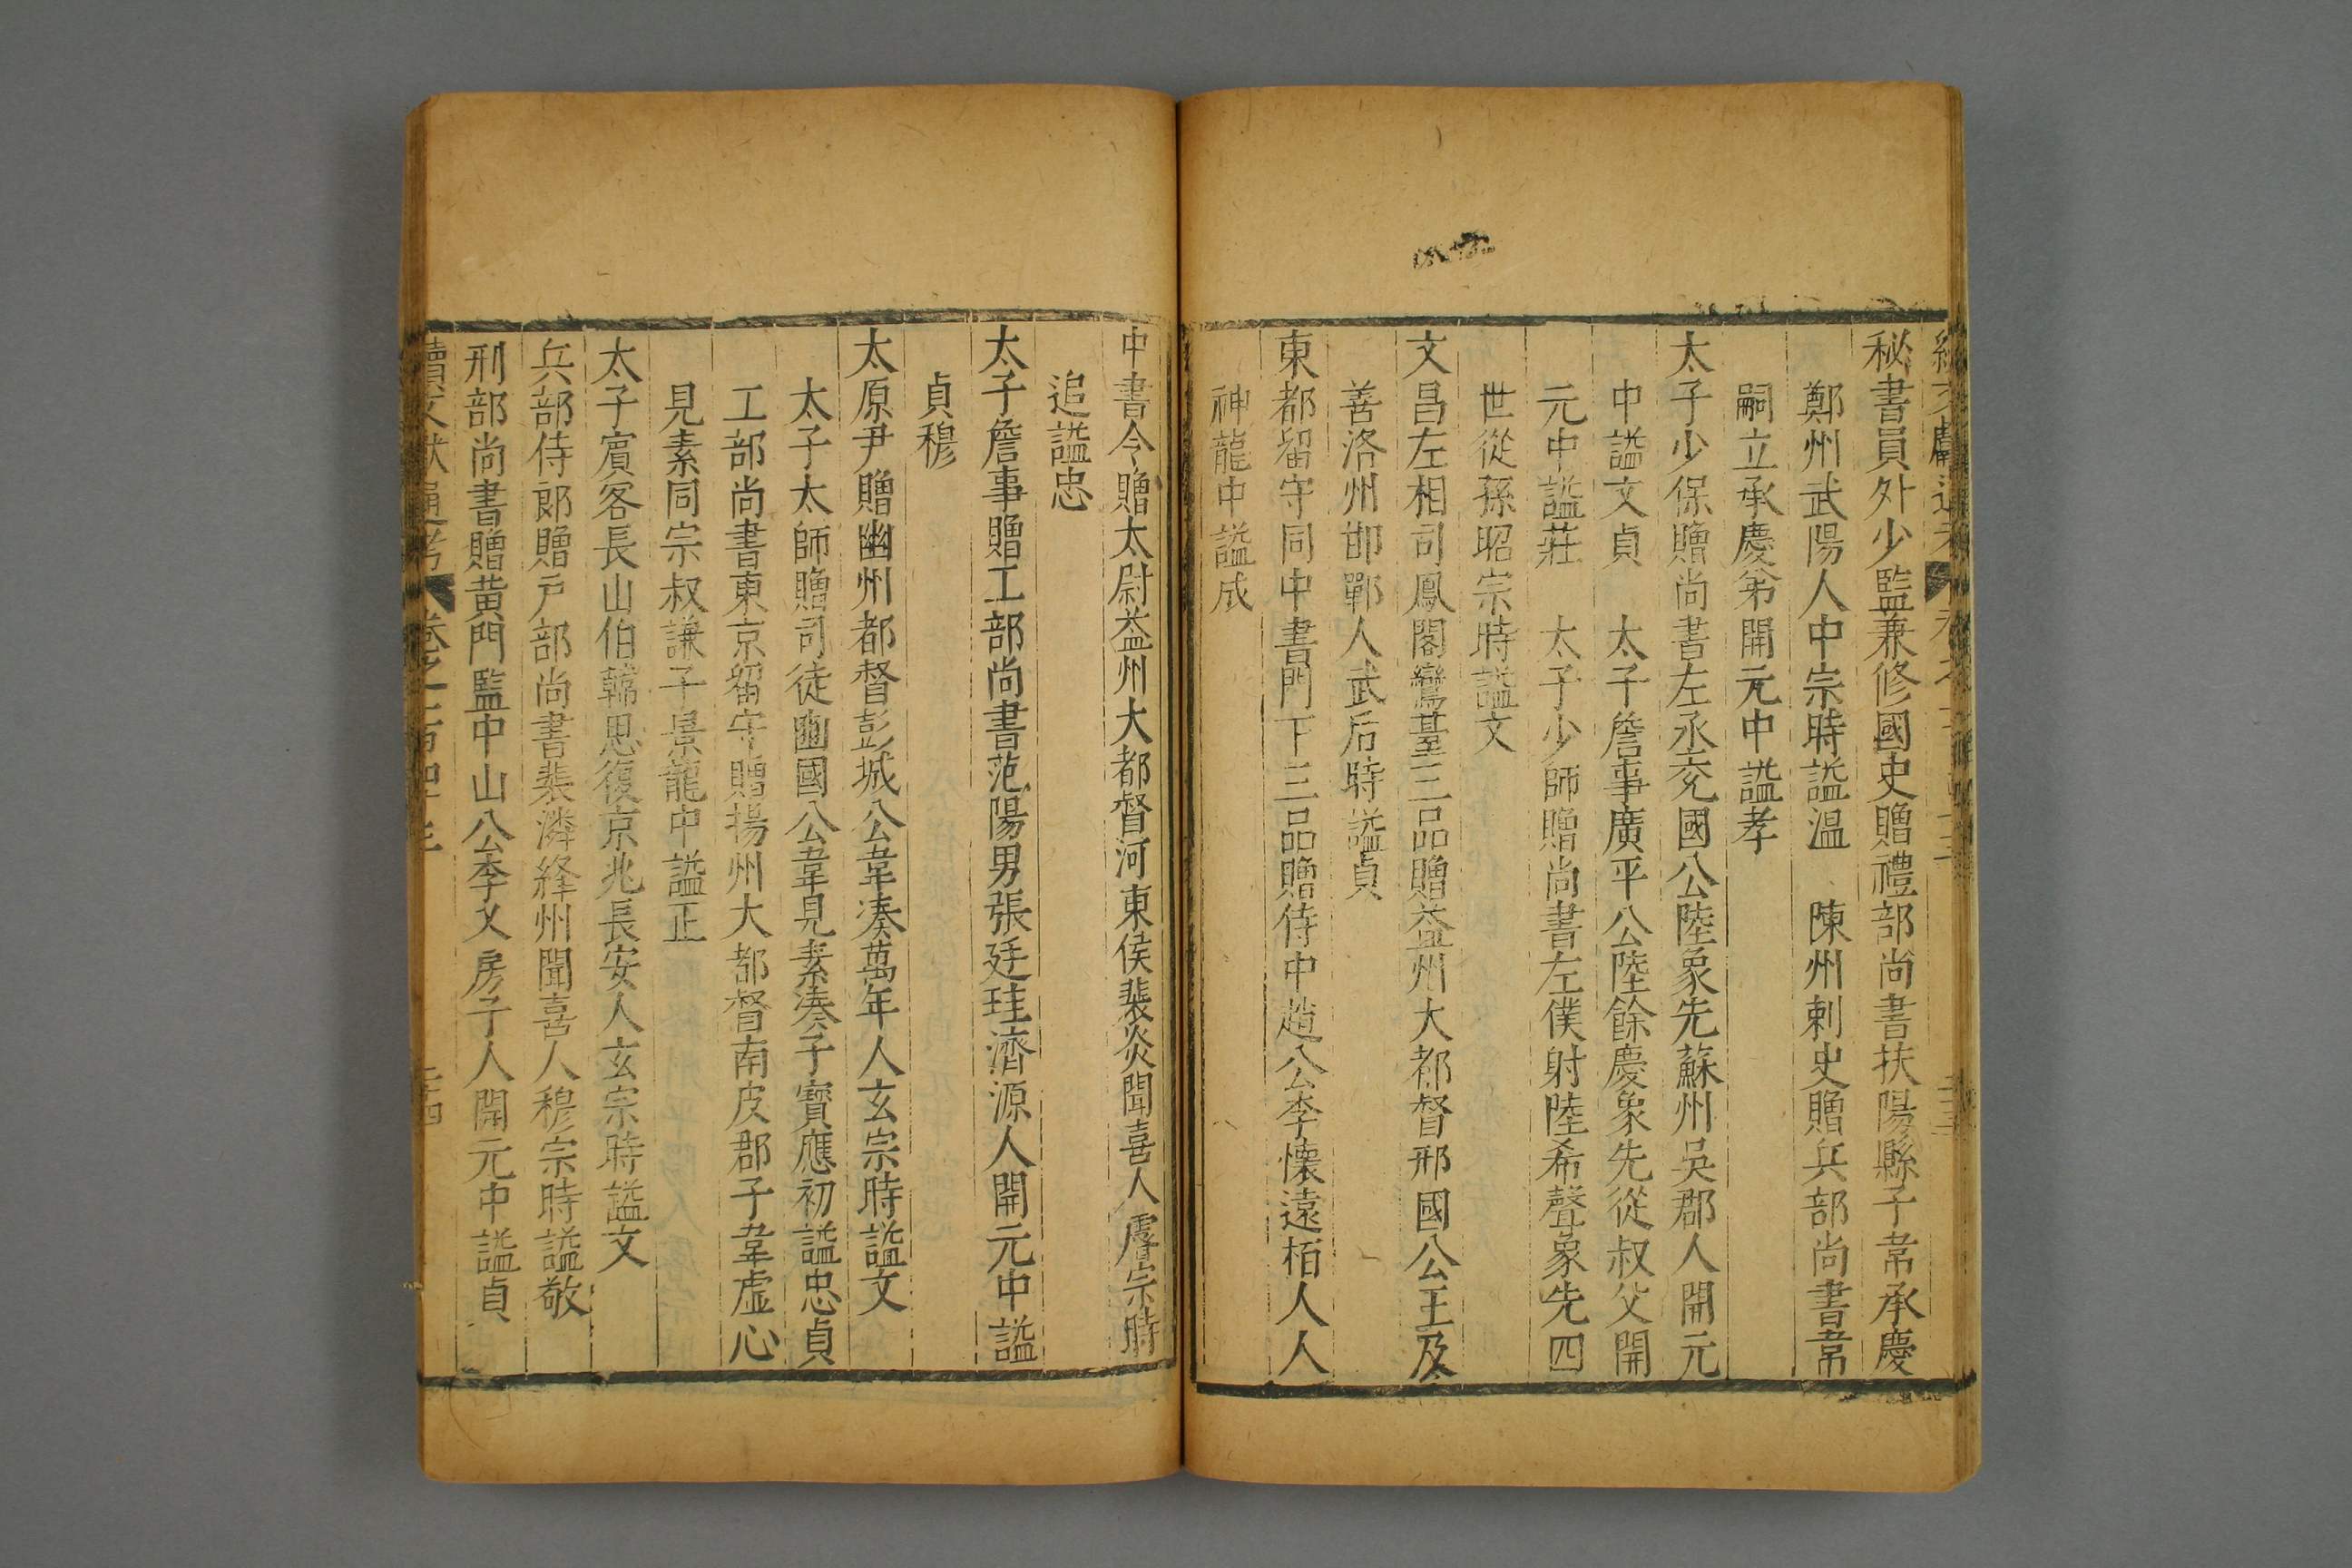 秘書員外少監兼修國史贈禮部尚書扶陽縣子韋承慶
鄭州武陽人中宗時謚温　陳州刺史贈兵部尚書韋
嗣立承慶弟開元中謚孝
太子少保贈尚書左丞兖國公陸象先蘇州吳郡人開元
中謚文貞　太子詹事廣平公陸餘慶象先從叔父開
元中謚莊　太子少師贈尚書左僕射陸希聲象先四
世從孫昭宗時謚文
文昌左相司鳳閣鸞臺三品贈益州大都督邢國公王及
善洛州邯鄲人武后時謚貞
東都留守同中書門下三品贈侍中趙公李懷遠栢人人
神龍中謚成
中書令贈太尉益州大都督河東侯裴炎聞喜人睿宗時
追謚忠
太子詹事贈工部尚書范陽男張廷珪濟源人開元中謚
貞穆
太原尹贈幽州都督彭城公韋湊萬年人玄宗時謚文
太子太師贈司徒豳國公韋見素湊子寶應初謚忠貞
工部尚書東京留守贈揚州大都督南皮郡子韋虛心
見素同宗叔謙子景龍中謚正
太子賓客長山伯韓思復京兆長安人玄宗時謚文
兵部侍郎贈戶部尚書裴潾絳州聞喜人穆宗時謚敬
刑部尚書贈黃門監中山公李乂房子人開元中謚貞
續文獻通考　卷之一百四十　二十四